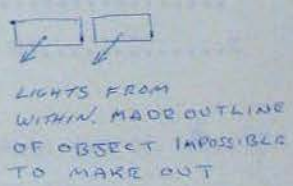 LIGHTS FROM
WITHIN. MADE OUTLINE
OF OBJECT IMPOSSIBLE
TO MAKE OUT